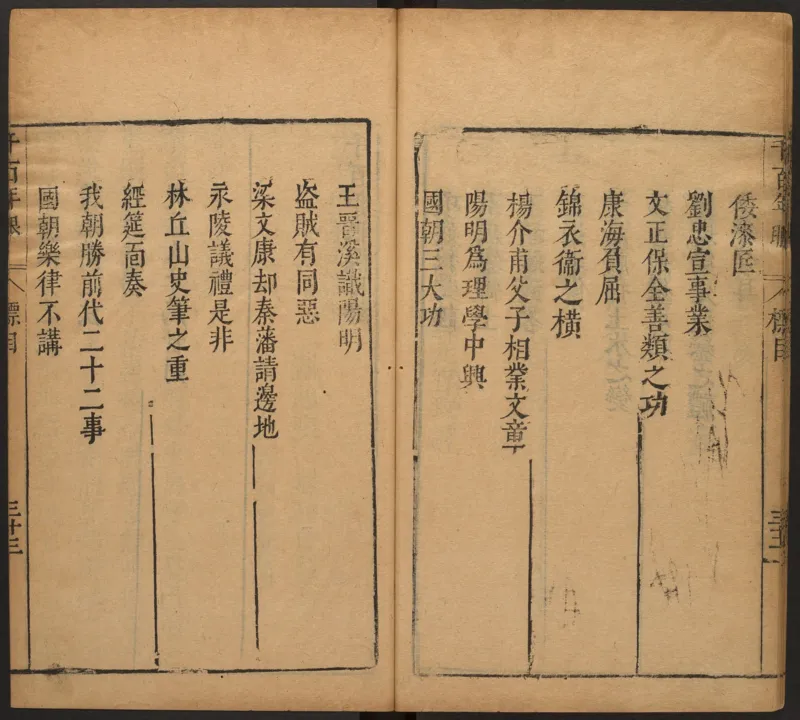 倭漆匠
劉忠宣事業
文正保全善類之功
康海負屈
錦衣衞之橫
楊介甫父子相業文章
陽明爲理學中興
國朝三大功
王晋溪識陽明
盗賊有同惡
梁文康却秦藩請邊地
永陵議禮是非
林丘山史筆之重
經筵面奏
我朝勝前代二十二事
國朝樂律不講
千百年眼
標目
三十三